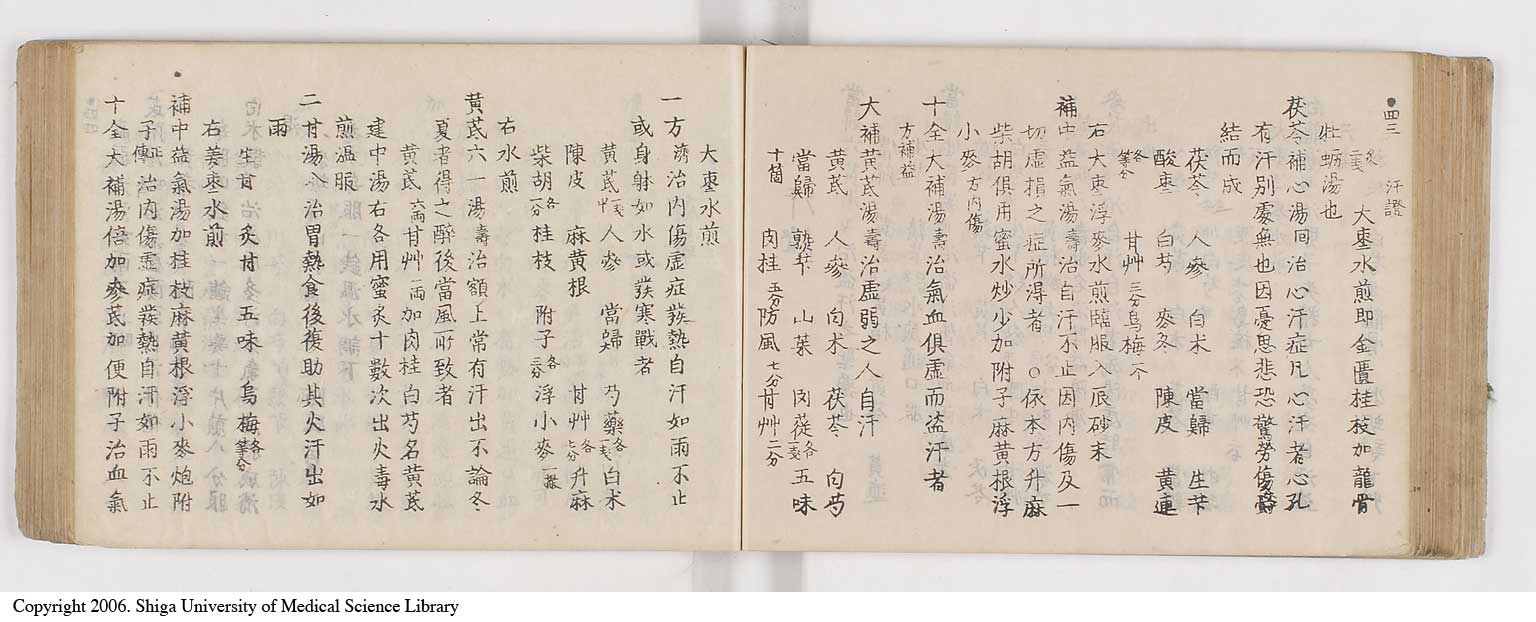 四三 汗證
大棗水煎即金匱桂枝加龍骨
牡蛎湯也
茯苓補心湯回治心汗症凡心汗者心孔
有汗別處無也因憂思悲恐驚勞傷欝
結而成
茯苓 人參 白朮 當歸 生芐
酸棗 白芍 麥冬 陳皮 黃連
各等分 甘艸三分 烏梅一个
右大棗浮麥水煎臨服入辰砂末
補中益氣湯壽治自汗不止因內傷及一
切虛損之症所得者 ○依本方升麻
柴胡俱用蜜水炒少加附子麻黃根浮
小麥 方內傷
十全大補湯壽治氣血俱虛而盜汗者
方補益
大補黃芪湯壽治虛弱之人自汗
黃芪 人參 白朮 茯苓 白芍
當歸 熟芐 山茱 肉蓯各一戔 五味
十箇 肉桂五分 防風七分 甘艸二分
大棗水煎
一方濟治內傷虛症發熱自汗如雨不止
或身射如水或發寒戰者
黃芪一戔半 人參 當歸 芍藥各一戔 白朮
陳皮 麻黃根 甘艸各七分 升麻
柴胡各一分 桂枝 附子各三分 浮小麥一撮
右水煎
黃芪六一湯壽治額上常有汗出不論冬
夏者得之醉後當風所致者
黃芪六兩 甘艸一兩 加肉桂白芍名黃芪
建中湯右各用蜜炙十數次出火毒水
煎溫服
二甘湯仝治胃熱食後復助其火汗出如
雨 生甘 治炙甘 各五味 烏梅各等分
右姜棗水煎
補中益氣湯加桂枝麻黃根浮小麥炮附
子正傳治內傷虛症發熱自汗如雨不止
十全大補湯倍加參芪加便附子治血氣
Copyright 2006. Shiga University of Medical Science Library